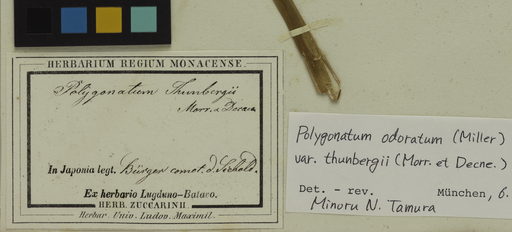 HERBARIUM REGIUM MONACENSE.
Polygonatum Thunbergii
Morr. & Decne
In Japonia legt. Bürger comot. d. Siebold.
Ex herbario Lugduno-Batavo.
HERB. ZUCCARINII.
Herbar. Univ. Ludov. Maximil.
Polygonatum odoratum (Miller)
var. thunbergii (Morr. et Decne.)
Det. - rev. München, 6.
Minoru N. Tamura